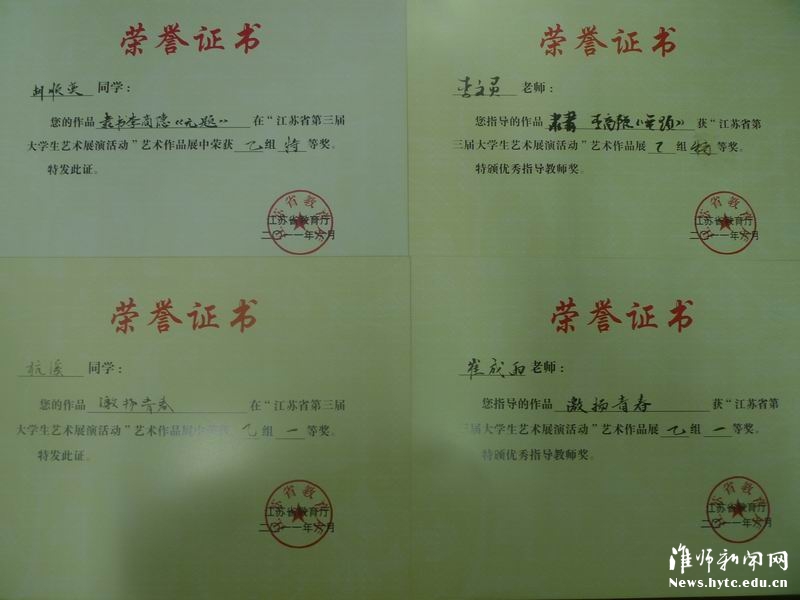 荣誉证书
同学：
您的作品 隶书李商隐《无题》 在“江苏省第三届
大学生艺术展演活动”艺术作品展中荣获 乙 组 特 等奖。
特发此证。
江苏省教育厅
二〇一一年六月
荣誉证书
李文员 老师：
您指导的作品 李商隐《无题》 获“江苏省第
三届大学生艺术展演活动”艺术作品展 乙 组 特 等奖。
特颁优秀指导教师奖。
江苏省教育厅
二〇一一年六月
荣誉证书
杭溪 同学：
您的作品 激扬青春 在“江苏省第三届
大学生艺术展演活动”艺术作品展中荣获 乙 组 一 等奖。
特发此证。
江苏省教育厅
二〇一一年六月
荣誉证书
崔成雨 老师：
您指导的作品 激扬青春 获“江苏省第
三届大学生艺术展演活动”艺术作品展 乙 组 一 等奖。
特颁优秀指导教师奖。
江苏省教育厅
二〇一一年六月
淮师新闻网
News.hytc.edu.cn